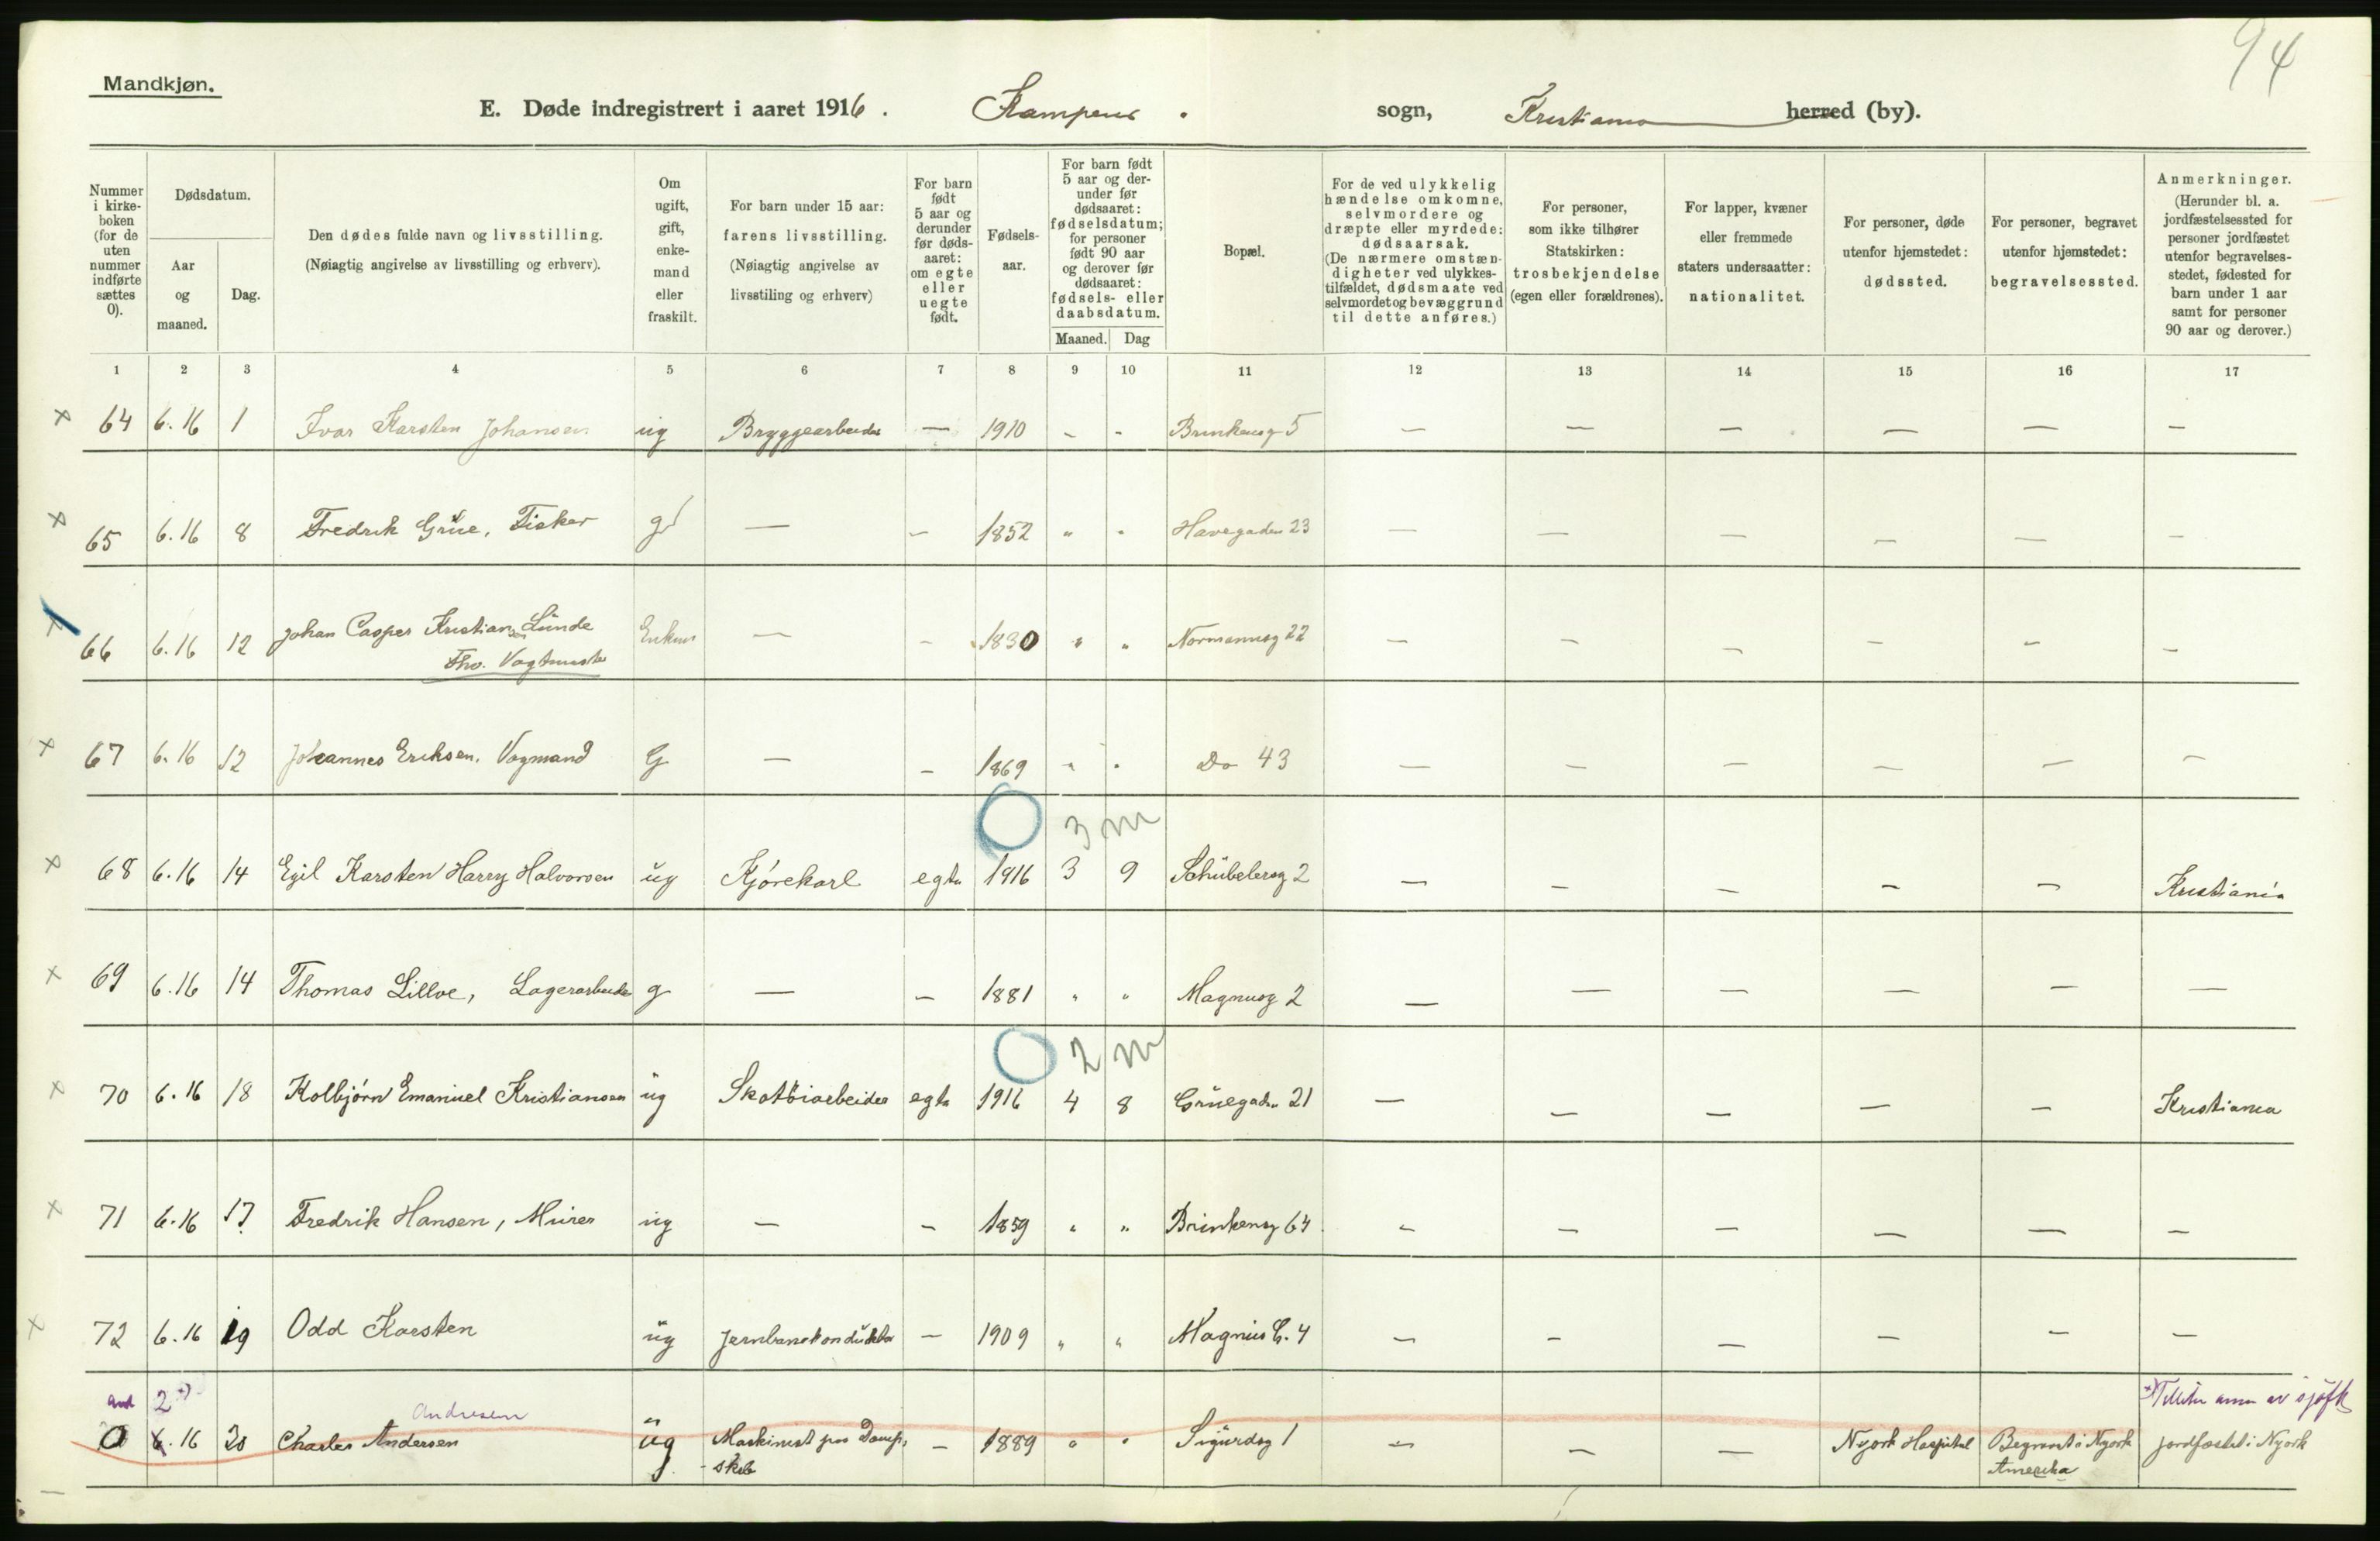 94
Mandkjøn.
E. Døde indregistrert i aaret 1916. Kampens sogn, Kristiania herred (by).
Nummer i kirke-boken (for de uten nummer indførte sættes 0).
Dødsdatum.
Aar og maaned.
Dag.
Den dødes fulde navn og livsstilling.
(Nøiagtig angivelse av livsstilling og erhverv).
Om ugift, gift, enke-mand eller fraskilt.
For barn under 15 aar: farens livsstilling.
(Nøiagtig angivelse av livsstiling og erhverv)
For barn født 5 aar og derunder før døds-aaret: om egte eller uegte født.
Fødsels-aar.
For barn født 5 aar og der-under før dødsaaret: fødselsdatum; for personer født 90 aar og derover før dødsaaret: fødsels- eller daabsdatum.
Maaned. Dag
Bopæl.
For de ved ulykkelig hændelse omkomne, selvmordere og dræpte eller myrdede: dødsaarsak.
(De nærmere omstæn-digheter ved ulykkes-tilfældet, dødsmaate ved selvmordet og bevæggrund til dette anføres.)
For personer, som ikke tilhører Statskirken: trosbekjendelse (egen eller forældrenes).
For lapper, kvæner eller fremmede staters undersaatter: nationalitet.
For personer, døde utenfor hjemstedet: dødssted.
For personer, begravet utenfor hjemstedet: begravelsessted.
Anmerkninger.
(Herunder bl. a. jordfæstelsessted for personer jordfæstet utenfor begravelses-stedet, fødested for barn under 1 aar samt for personer 90 aar og derover.)
1 2 3 4 5 6 7 8 9 10 11 12 13 14 15 16 17
x 64 6.16 1 Ivar Karsten Johansen ug Bryggearbeider — 1910 - - Brinkensg 5 — — — — — —
x 65 6.16 8 Fredrik Grüe, Fisker g — — 1852 " " Havegaden 23 — — — — — —
x 66 6.16 12 Johan Casper Kristian Lunde Enkem — — 1830 " " Normannsg 22 — — — — — —
Fhv. Vagtmester
x 67 6.16 12 Johannes Eriksen, Vognmand G — — 1869 " " Do 43 — — — — — —
3 m
x 68 6.16 14 Egil Karsten Harry Halvorsen ug Kjørekarl egte 1916 3 9 Schübelersg 2 — — — — — Kristiania
x 69 6.16 14 Thomas Lilloe, Lagerarbeider g — — 1881 " " Magnusg 2 — — — — — —
2 m
x 70 6.16 18 Kolbjørn Emanuel Kristiansen ug Skotöiarbeider egte 1916 4 8 Grüegaden 21 — — — — — Kristiania
x 71 6.16 17 Fredrik Hansen, Murer ug — — 1859 " " Brinkensg 64 — — — — — —
x 72 6.16 19 Odd Karsten ug Jernbanekonduktør — 1909 " " Magnus G. 4 — — — — — —
2 Andresen av sjöfk
0 6.16 20 Charles Andersen ug Maskinist paa Damp- — 1889 " " Sigurdsg 1 — — — N york Hospital Begravet i N york jordfæstet i N york
skib Amerika